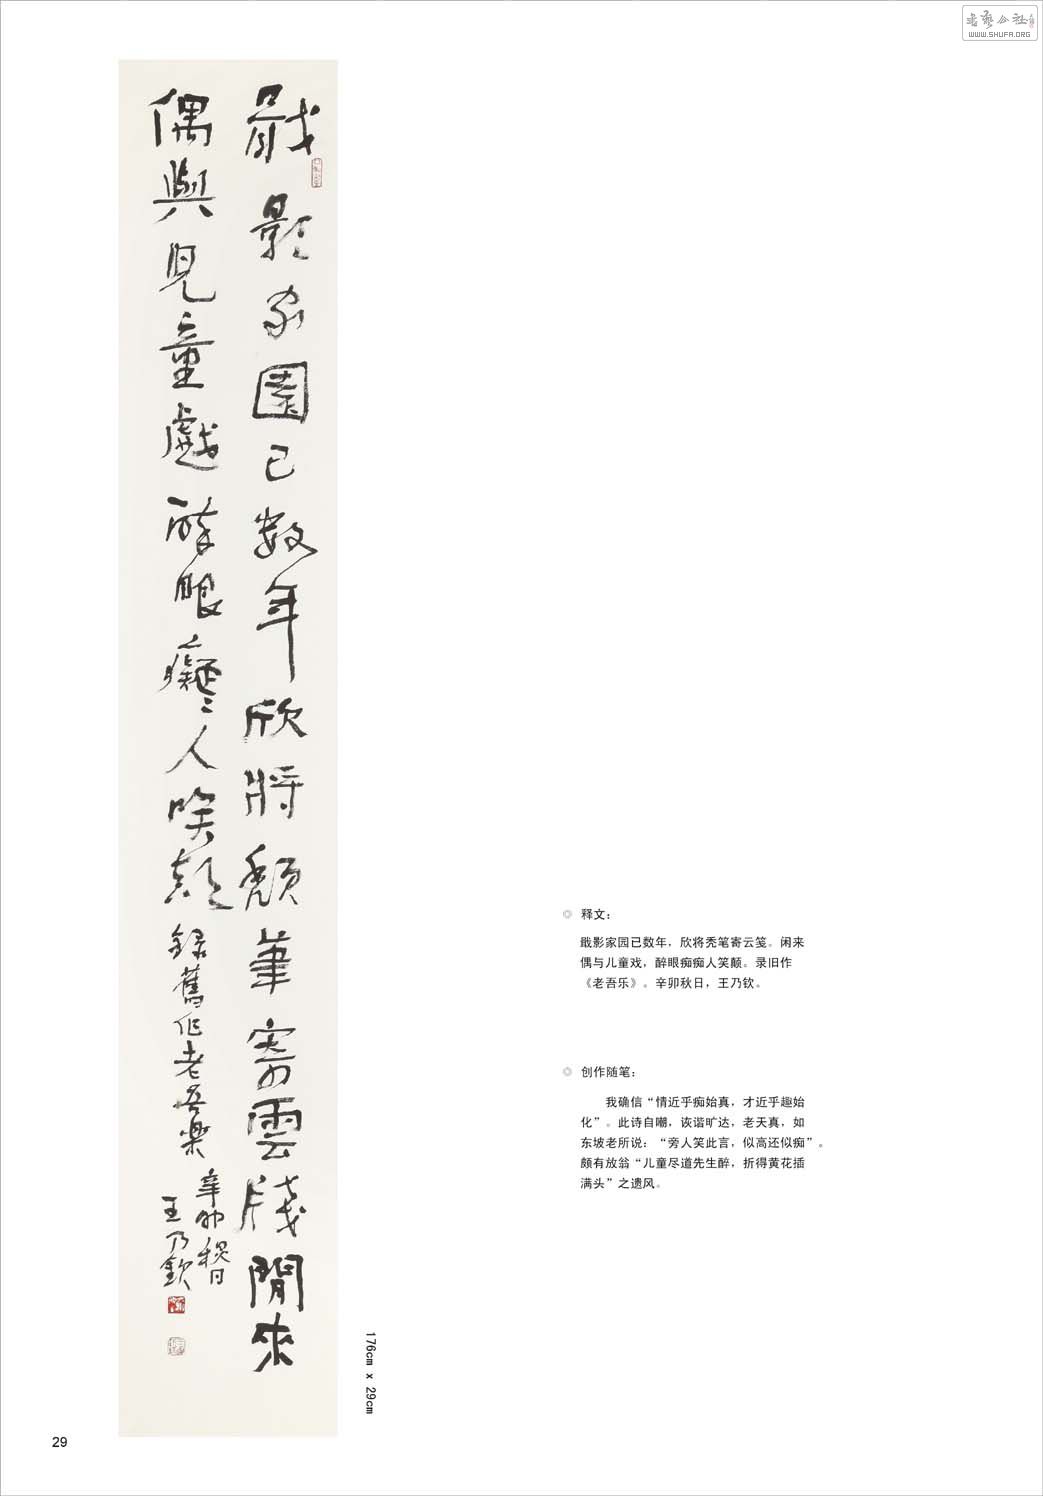 书艺公社
WWW.SHUFA.ORG
戢影家園已数年欣將秃筆寄雲牋閒來
偶與兒童戲醉眼癡〻人咲顛
録舊作老吾樂
辛卯秋日
王乃欽
176cm x 29cm
释文：
戢影家园已数年，欣将秃笔寄云笺。闲来
偶与儿童戏，醉眼痴痴人笑颠。录旧作
《老吾乐》。辛卯秋日，王乃钦。
创作随笔：
我确信“情近乎痴始真，才近乎趣始
化”。此诗自嘲，诙谐旷达，老天真，如
东坡老所说：“旁人笑此言，似高还似痴”。
颇有放翁“儿童尽道先生醉，折得黄花插
满头”之遗风。
29